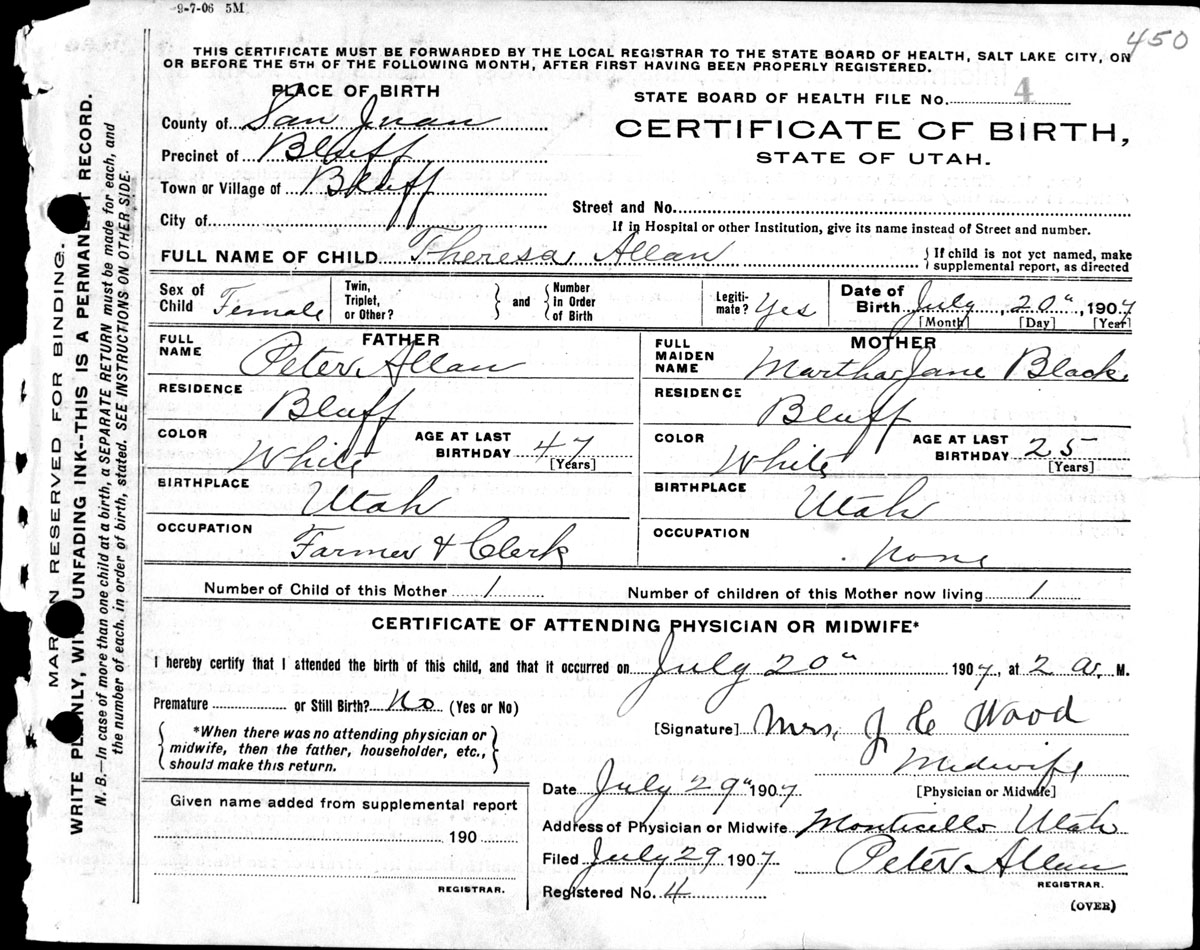 9-7-06 5M
450
THIS CERTIFICATE MUST BE FORWARDED BY THE LOCAL REGISTRAR TO THE STATE BOARD OF HEALTH, SALT LAKE CITY, ON
OR BEFORE THE 5TH OF THE FOLLOWING MONTH, AFTER FIRST HAVING BEEN PROPERLY REGISTERED.
PLACE OF BIRTH
STATE BOARD OF HEALTH FILE No. 4
County of San Juan
CERTIFICATE OF BIRTH,
Precinct of Bluff
STATE OF UTAH.
Town or Village of Bluff
Street and No.
City of
If in Hospital or other Institution, give its name instead of Street and number.
FULL NAME OF CHILD Theresa Allan
{If child is not yet named, make
supplemental report, as directed
Sex of Child Female
Twin, Triplet, or Other? } and { Number in Order of Birth
Legiti-mate? Yes
Date of Birth July, 20", 1907
[Month] [Day] [Year]
FATHER
FULL NAME Peter Allan
RESIDENCE Bluff
COLOR White
AGE AT LAST BIRTHDAY 47
[Years]
BIRTHPLACE Utah
OCCUPATION Farmer & Clerk
MOTHER
FULL MAIDEN NAME Martha Jane Black
RESIDENCE Bluff
COLOR White
AGE AT LAST BIRTHDAY 25
[Years]
BIRTHPLACE Utah
OCCUPATION none
Number of Child of this Mother 1
Number of children of this Mother now living 1
CERTIFICATE OF ATTENDING PHYSICIAN OR MIDWIFE*
I hereby certify that I attended the birth of this child, and that it occurred on July 20" 1907, at 2 a. M.
Premature or Still Birth? No (Yes or No)
[Signature] Mrs, J C Wood
{*When there was no attending physician or
midwife, then the father, householder, etc.,
should make this return.}
Midwife
[Physician or Midwife]
Date July 29" 1907
Given name added from supplemental report
190
REGISTRAR.
Address of Physician or Midwife Monticello Utah
Filed July 29 1907
Peter Allan
REGISTRAR.
Registered No. 4
(OVER)
MAR N RESERVED FOR BINDING.
WRITE PL NLY, WI UNFADING INK--THIS IS A PERMANE T RECORD.
N. B.—In case of more than one child at a birth, a SEPARATE RETURN must be made for each, and
the number of each, in order of birth, stated. SEE INSTRUCTIONS ON OTHER SIDE.